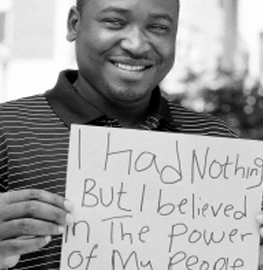 I Had Nothing
But I believed
in The Power
of My People